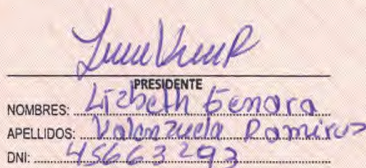 PRESIDENTE
NOMBRES: Lizbeth Genara
APELLIDOS: Valenzuela Ramirez
DNI: 45663293